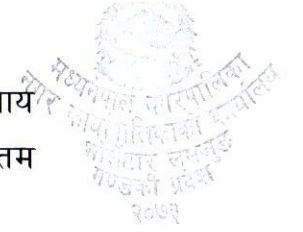 ाय
तम
मध्यनेपाल नगरपालिका
नगर कार्यपालिकाको कार्यालय
भोर्लेटार लमजुङ
गण्डकी प्रदेश
२०७३